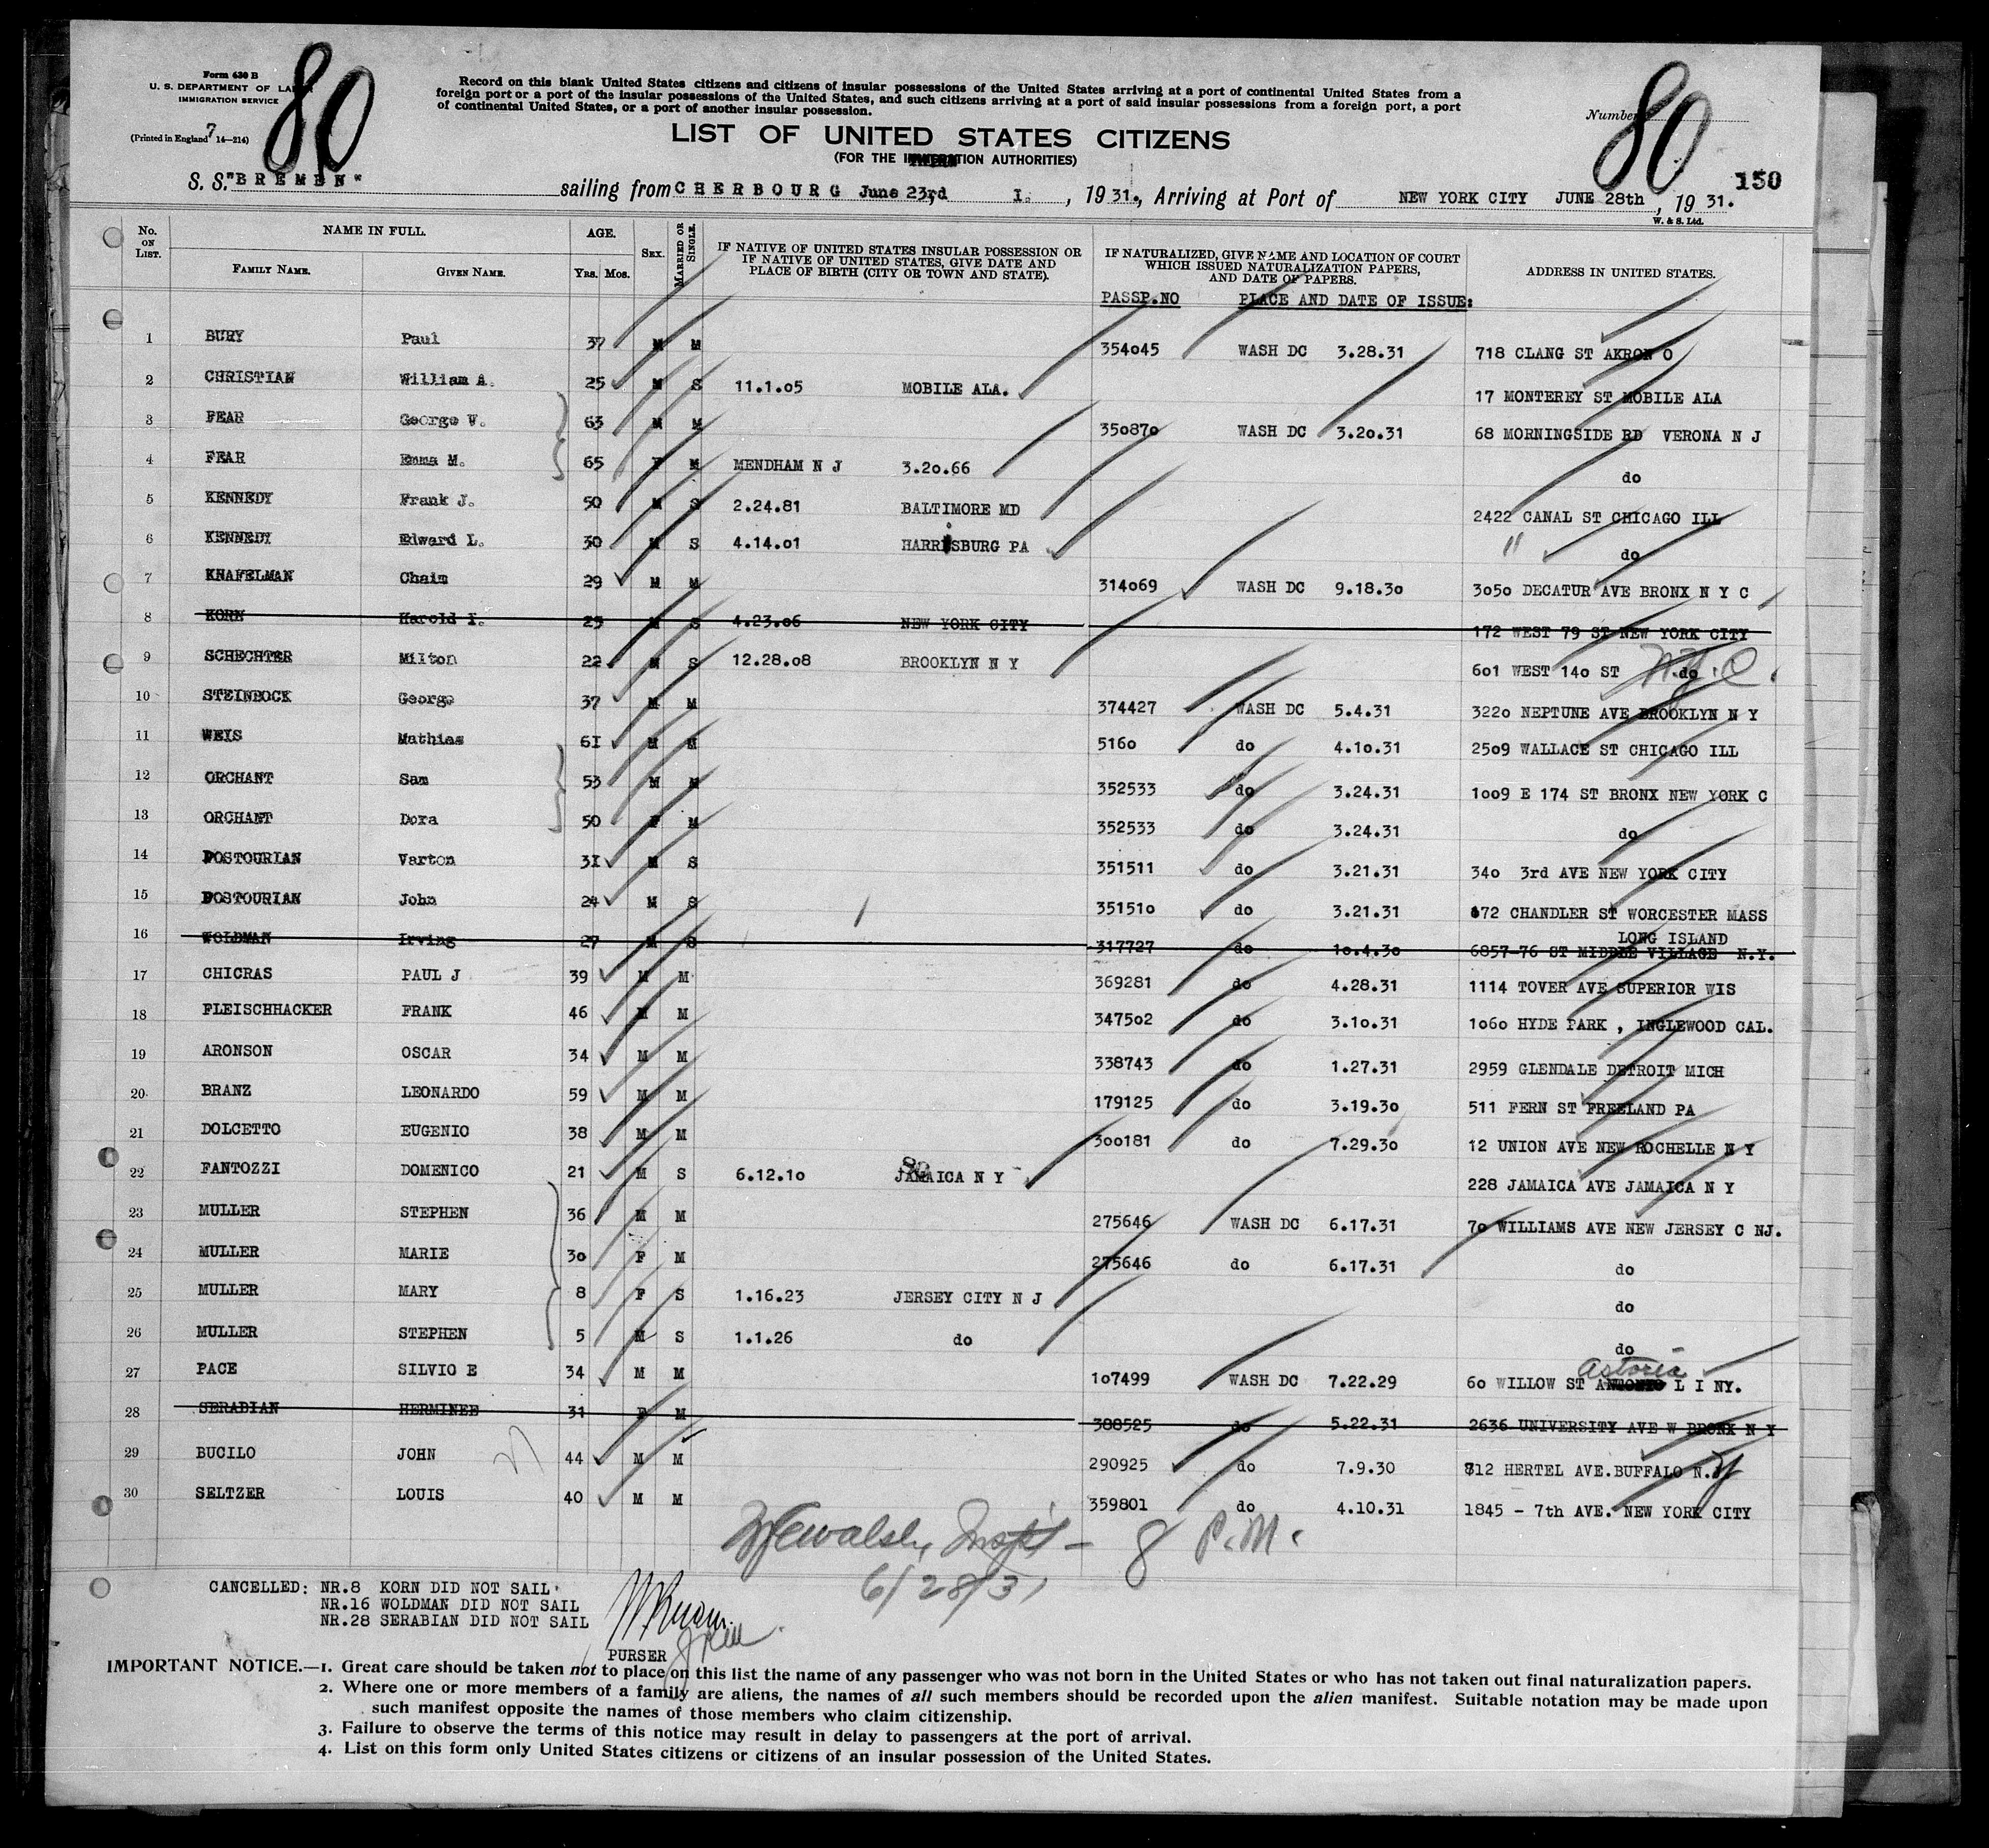 Form 630 B
U. S. DEPARTMENT OF LABOR
IMMIGRATION SERVICE
(Printed in England 7 14—214)
80
Record on this blank United States citizens and citizens of insular possessions of the United States arriving at a port of continental United States from a
foreign port or a port of the insular possessions of the United States, and such citizens arriving at a port of said insular possessions from a foreign port, a port
of continental United States, or a port of another insular possession.
Number
80
150
LIST OF UNITED STATES CITIZENS
(FOR THE IMMIGRATION AUTHORITIES)
S. S. "BREMEN" sailing from CHERBOURG June 23rd I. , 1931., Arriving at Port of NEW YORK CITY JUNE 28th , 1931.
W. & S. Ltd.
No. ON LIST. NAME IN FULL. FAMILY NAME. GIVEN NAME. AGE. Yrs. Mos. SEX. MARRIED OR SINGLE.
IF NATIVE OF UNITED STATES INSULAR POSSESSION OR
IF NATIVE OF UNITED STATES, GIVE DATE AND
PLACE OF BIRTH (CITY OR TOWN AND STATE).
IF NATURALIZED, GIVE NAME AND LOCATION OF COURT
WHICH ISSUED NATURALIZATION PAPERS,
AND DATE OF PAPERS.
ADDRESS IN UNITED STATES.
PASSP.NO PLACE AND DATE OF ISSUE:
1 BURY Paul 37 M M 354045 WASH DC 3.28.31 718 CLANG ST AKRON O
2 CHRISTIAN William A. 25 M S 11.1.05 MOBILE ALA. 17 MONTEREY ST MOBILE ALA
3 FEAR George W. 63 M M 350870 WASH DC 3.20.31 68 MORNINGSIDE RD VERONA N J
4 FEAR Emma M. 65 F M MENDHAM N J 3.20.66 do
5 KENNEDY Frank J. 50 M S 2.24.81 BALTIMORE MD 2422 CANAL ST CHICAGO ILL
6 KENNEDY Edward L. 30 M S 4.14.01 HARRISBURG PA " do
7 KNAFELMAN Chaim 29 M M 314069 WASH DC 9.18.30 3050 DECATUR AVE BRONX N Y C
8 KORN Harold I. 25 M S 4.23.06 NEW YORK CITY 172 WEST 79 ST NEW YORK CITY
9 SCHECHTER Milton 22 M S 12.28.08 BROOKLYN N Y 601 WEST 140 ST do N.Y.C.
10 STEINBOCK George 37 M M 374427 WASH DC 5.4.31 3220 NEPTUNE AVE BROOKLYN N Y
11 WEIS Mathias 61 M M 5160 do 4.10.31 2509 WALLACE ST CHICAGO ILL
12 ORCHANT Sam 53 M M 352533 do 3.24.31 1009 E 174 ST BRONX NEW YORK C
13 ORCHANT Dora 50 F M 352533 do 3.24.31 do
14 POSTOURIAN Varton 31 M S 351511 do 3.21.31 340 3rd AVE NEW YORK CITY
15 POSTOURIAN John 24 M S 351510 do 3.21.31 672 CHANDLER ST WORCESTER MASS
LONG ISLAND
16 WOLDMAN Irving 27 M S 317727 do 10.4.30 6857-76 ST MIDDLE VILLAGE N.Y.
17 CHICRAS PAUL J 39 M M 369281 do 4.28.31 1114 TOVER AVE SUPERIOR WIS
18 FLEISCHHACKER FRANK 46 M M 347502 do 3.10.31 1060 HYDE PARK , INGLEWOOD CAL.
19 ARONSON OSCAR 34 M M 338743 do 1.27.31 2959 GLENDALE DETROIT MICH
20 BRANZ LEONARDO 59 M M 179125 do 3.19.30 511 FERN ST FREELAND PA
21 DOLCETTO EUGENIO 38 M M 300181 do 7.29.30 12 UNION AVE NEW ROCHELLE N Y
22 FANTOZZI DOMENICO 21 M S 6.12.10 JAMAICA N Y 228 JAMAICA AVE JAMAICA N Y
23 MULLER STEPHEN 36 M M 275646 WASH DC 6.17.31 70 WILLIAMS AVE NEW JERSEY C NJ.
24 MULLER MARIE 30 F M 275646 do 6.17.31 do
25 MULLER MARY 8 F S 1.16.23 JERSEY CITY N J do
26 MULLER STEPHEN 5 M S 1.1.26 do do
27 PACE SILVIO E 34 M M 107499 WASH DC 7.22.29 60 WILLOW ST Astoria L I NY.
28 SERABIAN HERMINEE 31 F M 388525 do 5.22.31 2636 UNIVERSITY AVE W BRONX N Y
29 BUCILO JOHN 44 M M 290925 do 7.9.30 812 HERTEL AVE.BUFFALO N.Y
30 SELTZER LOUIS 40 M M 359801 do 4.10.31 1845 - 7th AVE. NEW YORK CITY
Walsh, Inspt — 8 P.M.
6/28/31
CANCELLED: NR.8 KORN DID NOT SAIL
NR.16 WOLDMAN DID NOT SAIL
NR.28 SERABIAN DID NOT SAIL
PURSER
IMPORTANT NOTICE.—1. Great care should be taken not to place on this list the name of any passenger who was not born in the United States or who has not taken out final naturalization papers.
2. Where one or more members of a family are aliens, the names of all such members should be recorded upon the alien manifest. Suitable notation may be made upon
such manifest opposite the names of those members who claim citizenship.
3. Failure to observe the terms of this notice may result in delay to passengers at the port of arrival.
4. List on this form only United States citizens or citizens of an insular possession of the United States.